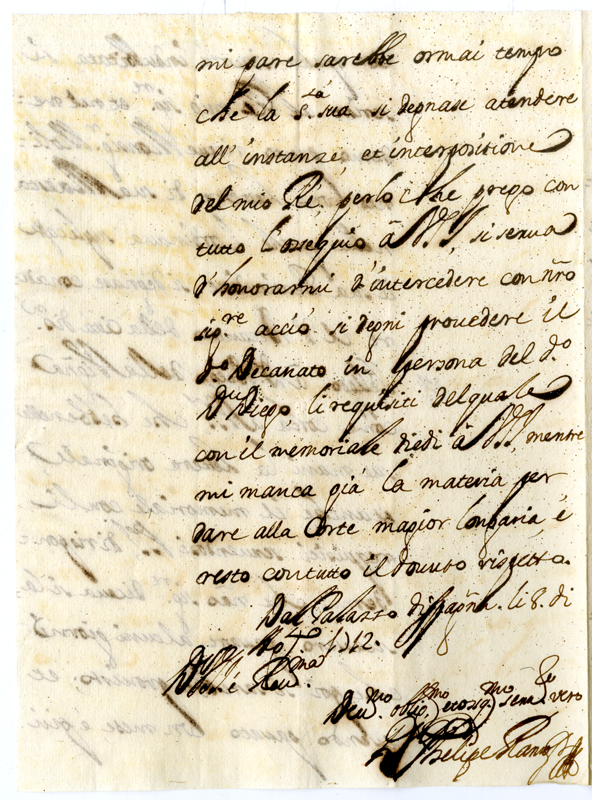 mi pare sarebbe ormai tempo
che la S.ta sua si degnase atendere
all' instanze, et interpositione
del mio Ré, perlo che prego con
tutto l'ossequio â V.S. Ill., si serva
d'honorarmi d'intercedere con nro
sig.re acció si degni provedere il
d.o Decanato in persona del d.o
Dn Diego, li requisiti del quale
con il memoriale diedi â V.S. Ill, mentre
mi manca giá la materia per
dare alla Corte magior longaria, é
resto con tutto il dovuto rispetto.
Dal Palazzo di Spagña. li 8. di
1712.
Ill. é Reu.ma
Deu.mo oblig.mo et osseq.mo serv.re vero
Phelipe